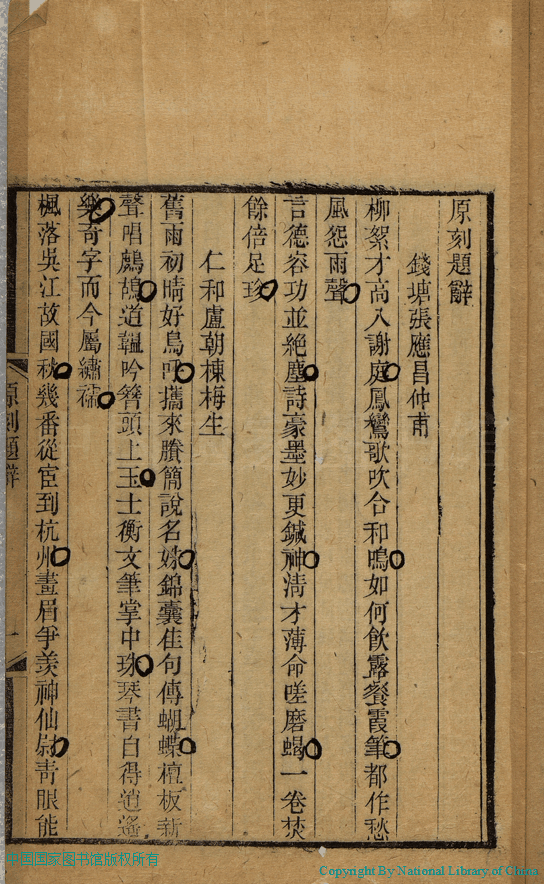 原刻題辭
錢塘張應昌仲甫
柳絮才高入謝庭鳳鸞歌吹合和鳴如何飲露餐霞筆都作愁
風怨雨聲
言德容功並絕塵詩豪墨妙更鍼神清才薄命嗟磨蝎一卷焚
餘倍足珍
仁和盧朝棟梅生
舊雨初晴好鳥呼攜來賸簡說名姝錦囊佳句傳蝴蝶檀板新
聲唱鷓鴣道韞吟簪頭上玉士衡文筆掌中珠琴書自得逍遙
樂奇字而今屬繡襦
楓落吳江故國秋幾番從宦到杭州畫眉爭羡神仙尉青眼能
原刻題辭
一
中国国家图书馆版权所有
Copyright By National Library of China